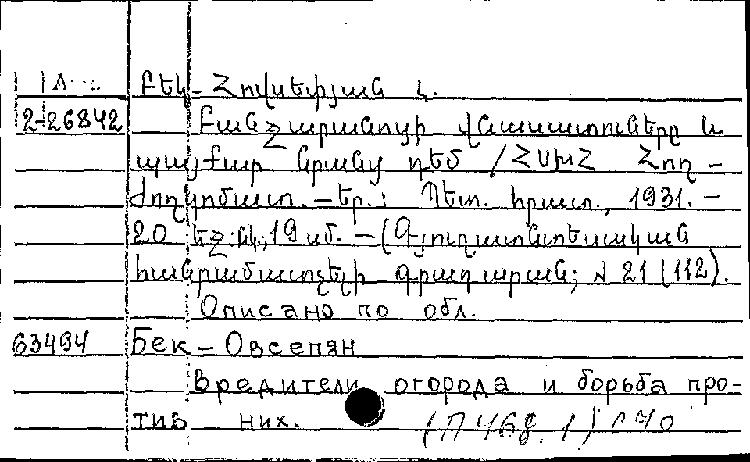 Բեկ-Հովսեփյան Հ.
2-26842 Բանջարանոցի վնասատուները և
պայքար նրանց դեմ /ՀՍԽՀ Հող-
ժողկոմատ.-Եր.: Պետ. հրատ., 1931.-
20 եջ:նկ.,19 սմ.-(Գյուղատնտեսական
հանրամատչելի գրադարան; N 21 (112).
Описано по обл.
63494 Бек-Овсепян
Вредители огорода и борьба про-
тив них. (П 468.1)